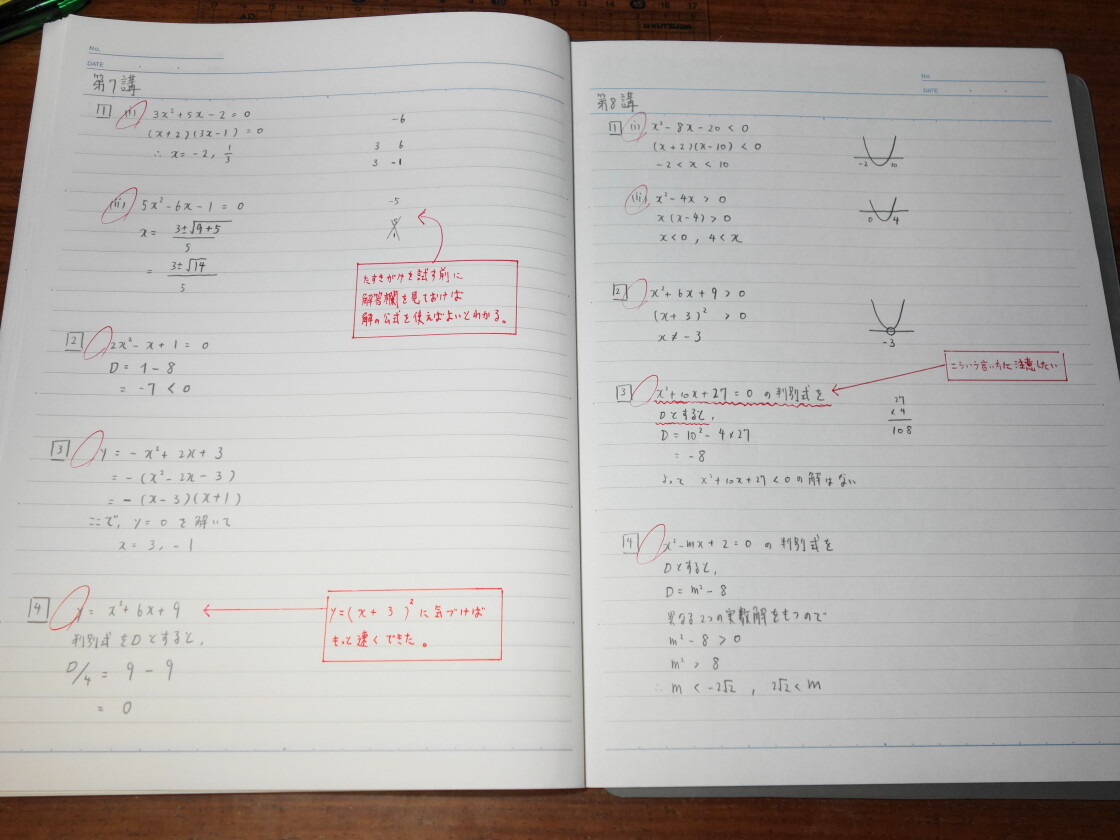 No.
DATE
第7講
1 (i) 3x²+5x-2=0
(x+2)(3x-1)=0
∴ x=-2, 1/3
-6
3 6
3 -1
(ii) 5x²-6x-1=0
x= 3±√9+5/5
= 3±√14/5
-5
たすきがけを試す前に
解答欄を見ておけば
解の公式を使えばよいとわかる。
2 2x²-x+1=0
D=1-8
=-7<0
3 y=-x²+2x+3
=-(x²-2x-3)
=-(x-3)(x+1)
ここで, y=0 を解いて
x=3, -1
4 y=x²+6x+9
判別式をDとすると,
D/4 = 9-9
= 0
y=(x+3)²に気づけば
もっと速くできた。
No.
DATE
第8講
1 (i) x²-8x-20<0
(x+2)(x-10)<0
-2<x<10
-2 10
(ii) x²-4x>0
x(x-4)>0
x<0, 4<x
0 4
2 x²+6x+9>0
(x+3)²>0
x≠-3
-3
こういう言い方に注意したい
3 x²+10x+27=0 の判別式を
Dとすると,
D=10²-4×27
=-8
よって x²+10x+27<0の解はない
27
×4
108
4 x²-mx+2=0 の判別式を
Dとすると,
D=m²-8
異なる2つの実数解をもつので
m²-8>0
m²>8
∴ m<-2√2, 2√2<m